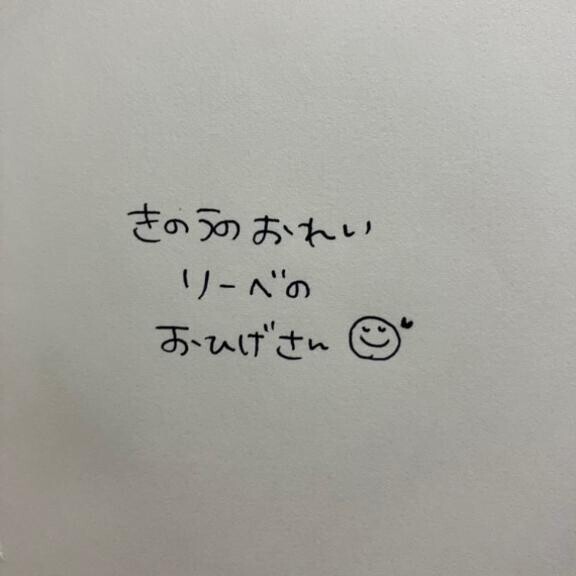 きのうのおれい
リーベの
おひげさん